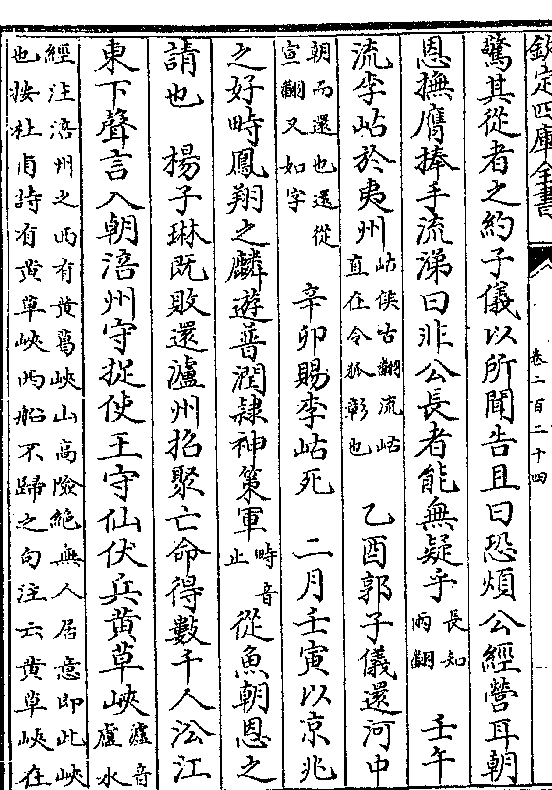 欽定四庫全書
卷二百二十四
驚其從者之約子儀以所聞告且曰恐煩公經營耳朝
恩撫膺捧手流涕曰非公長者能無疑乎長知兩翻 壬午
流李岵於夷州岵侯古翻流岵直在令狐彰也 乙酉郭子儀還河中
朝而還也還從宣翻又如字 辛卯賜李岵死 二月壬寅以涼兆
之好畤鳳翔之麟遊普潤隸神策軍畤音止從魚朝恩之
請也 楊子琳既敗還瀘州招聚亡命得數千人沿江
東下聲言入朝涪州守捉使王守仙伏兵黃草峽瀘音盧水
經注涪州之西有黃葛峽山高險絶無人居意即此峽
也按杜甫詩有黃草峽西船不歸之句注云黃草峽在